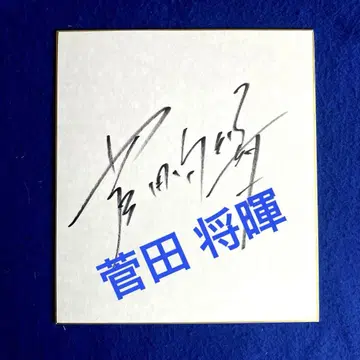 菅田将暉
菅田 将暉